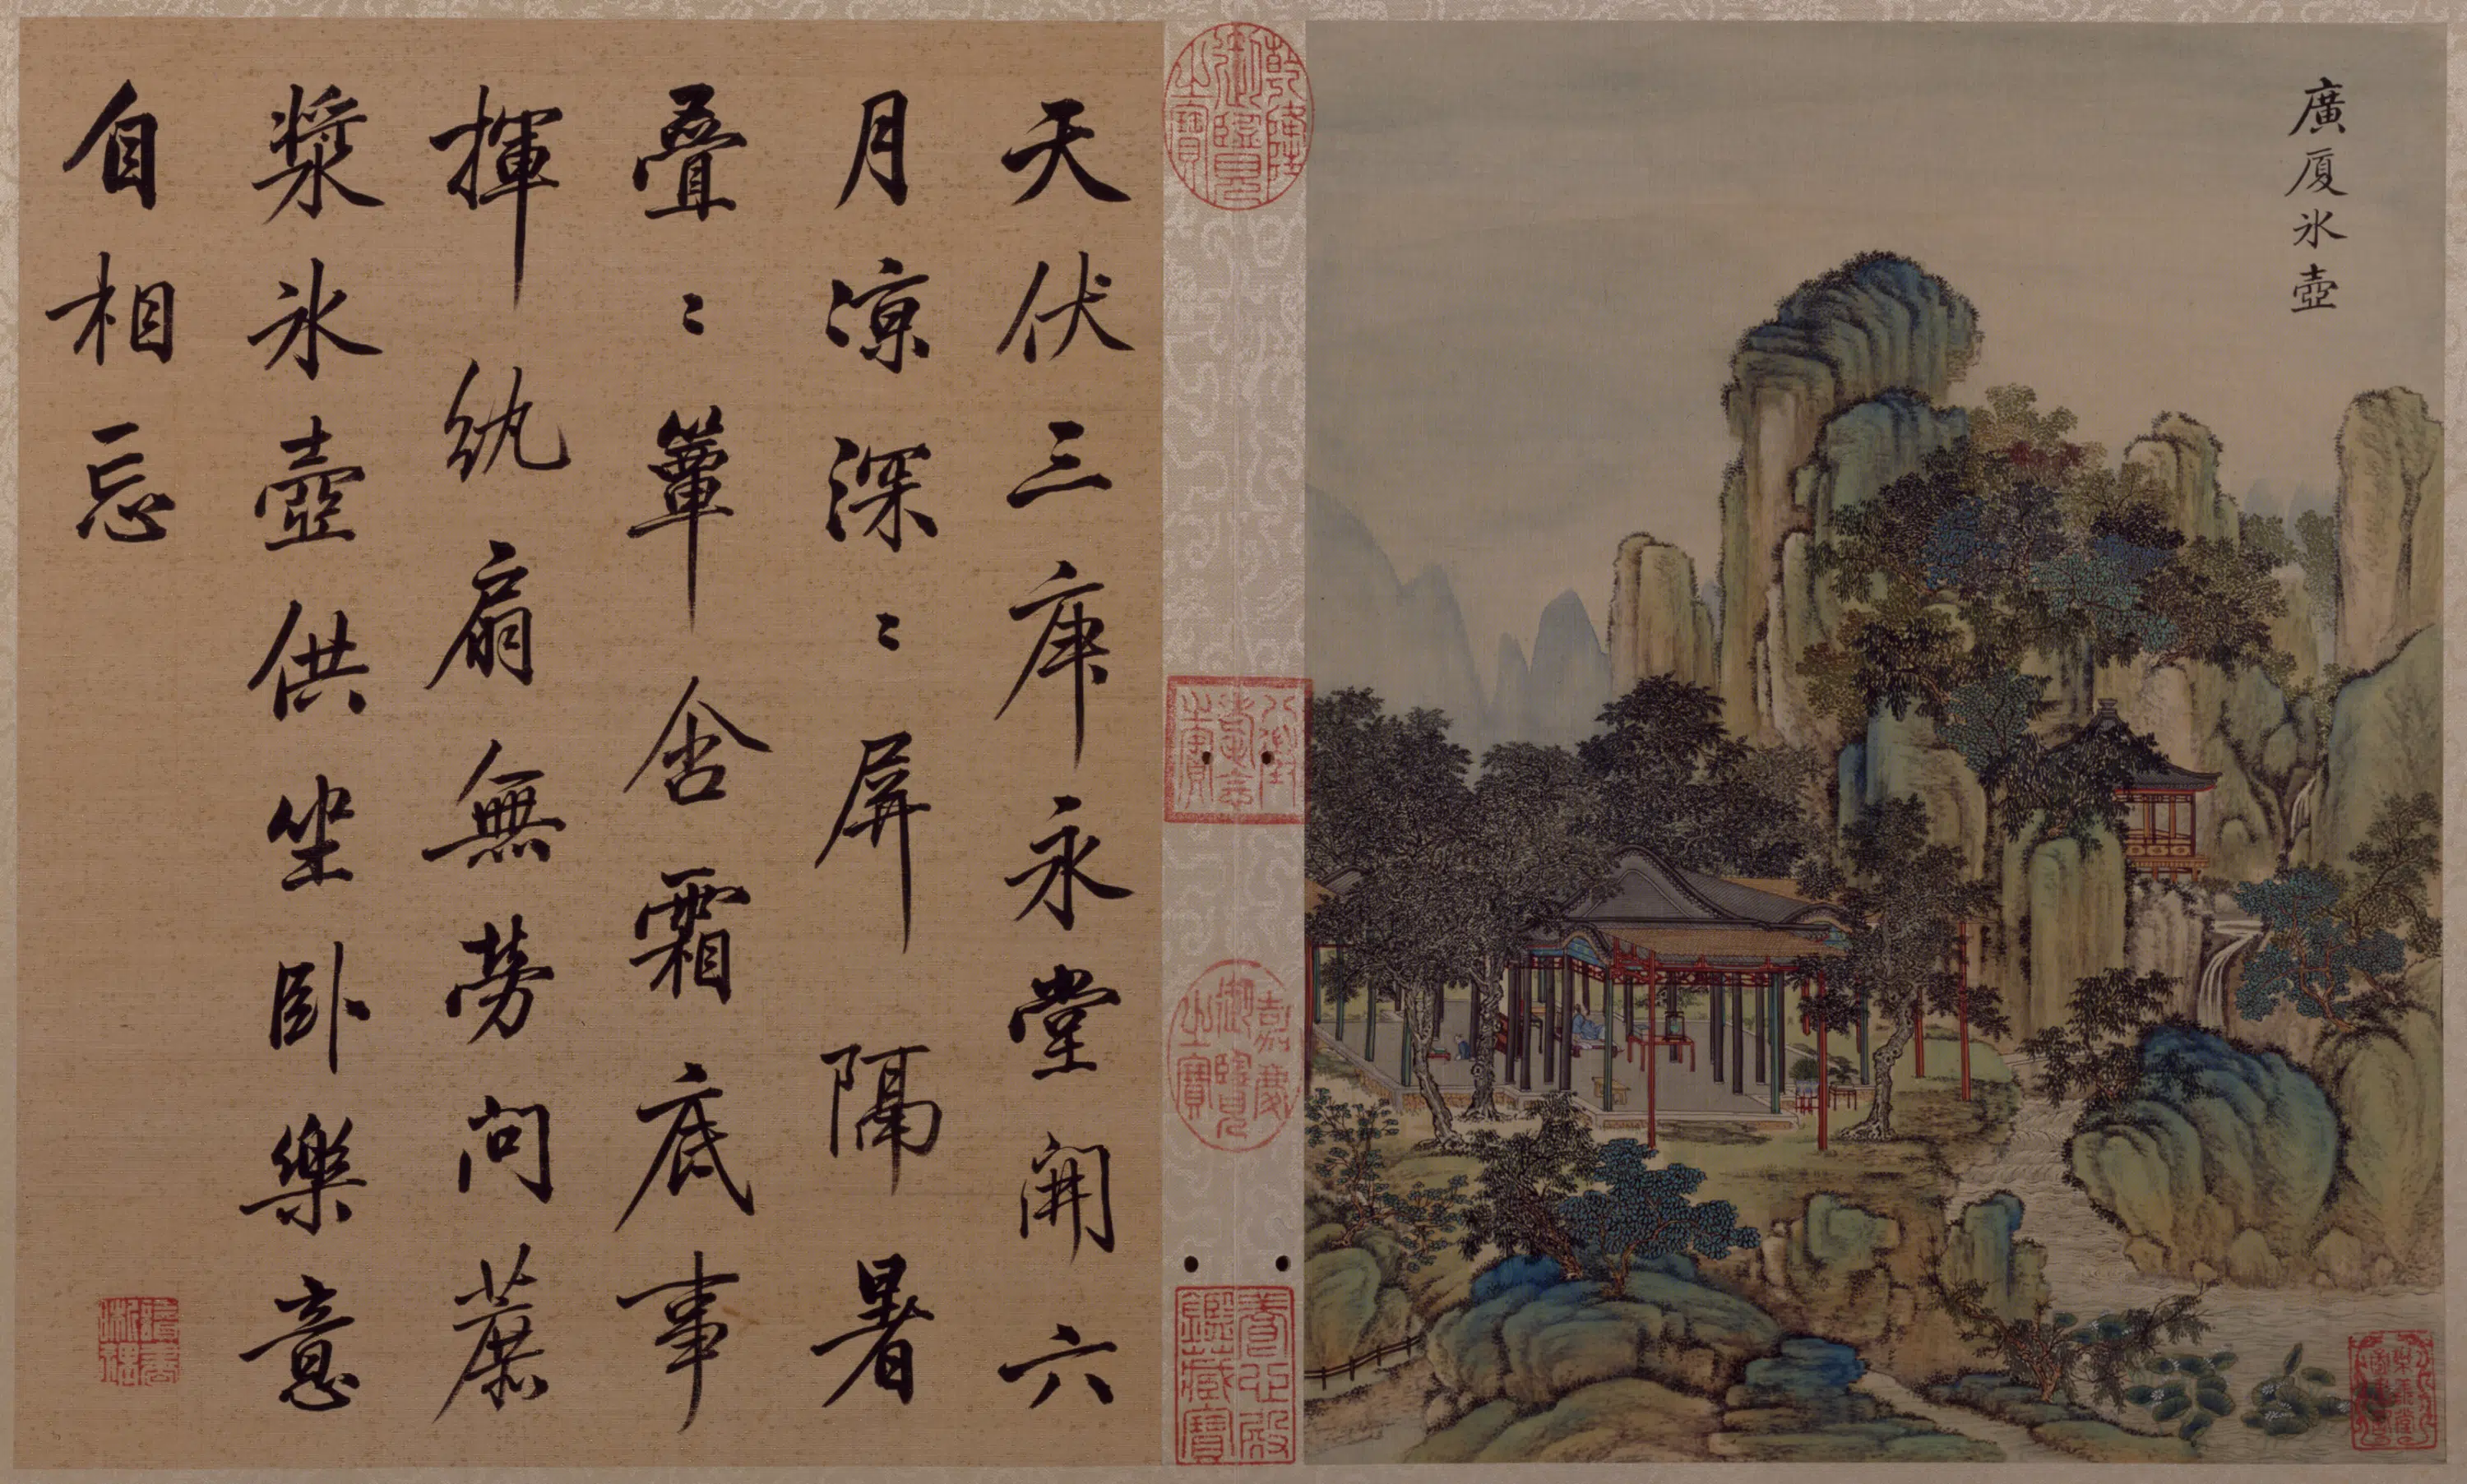 廣厦氷壺
天伏三庚永堂開六
月凉深〻屏隔暑
疊〻簟含霜底事
揮紈扇無勞問蔗
漿氷壺供坐卧樂意
自相忘
乾隆御覽之寶
八徵耄念之寶
嘉慶御覽之寶
養心殿鑑藏寶